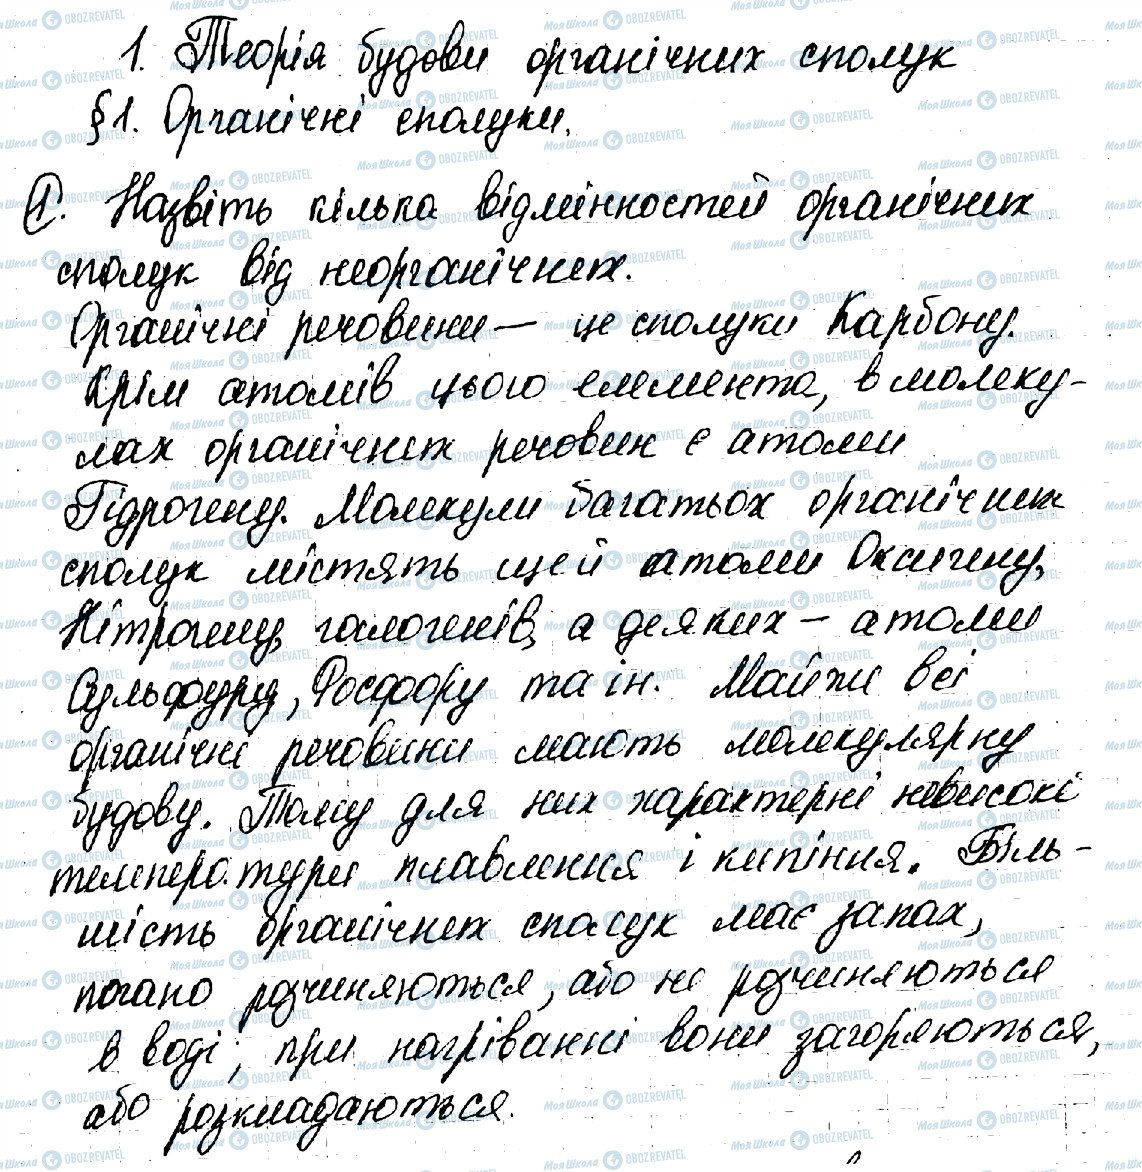 1. Теорія будови органічних сполук
§1. Органічні сполуки.
1. Назвіть кілька відмінностей органічних
сполук від неорганічних.
Органічні речовини — це сполуки Карбону.
Крім атомів цього елемента, в молеку-
лах органічних речовин є атоми
Гідрогену. Молекули багатьох органічних
сполук містять щей атоми Оксигену,
Нітрогену, галогенів, а деяких – атоми
Сульфуру, Фосфору та ін. Майжи всі
органічні речовини мають молекулярну
будову. Тому для них характерні невисокі
температури плавлення і кипіння. Біль-
шість органічних сполук має запах,
погано розчиняються, або не розчиняються
в воді, при нагріванні вони загоряються,
або розкладаються.